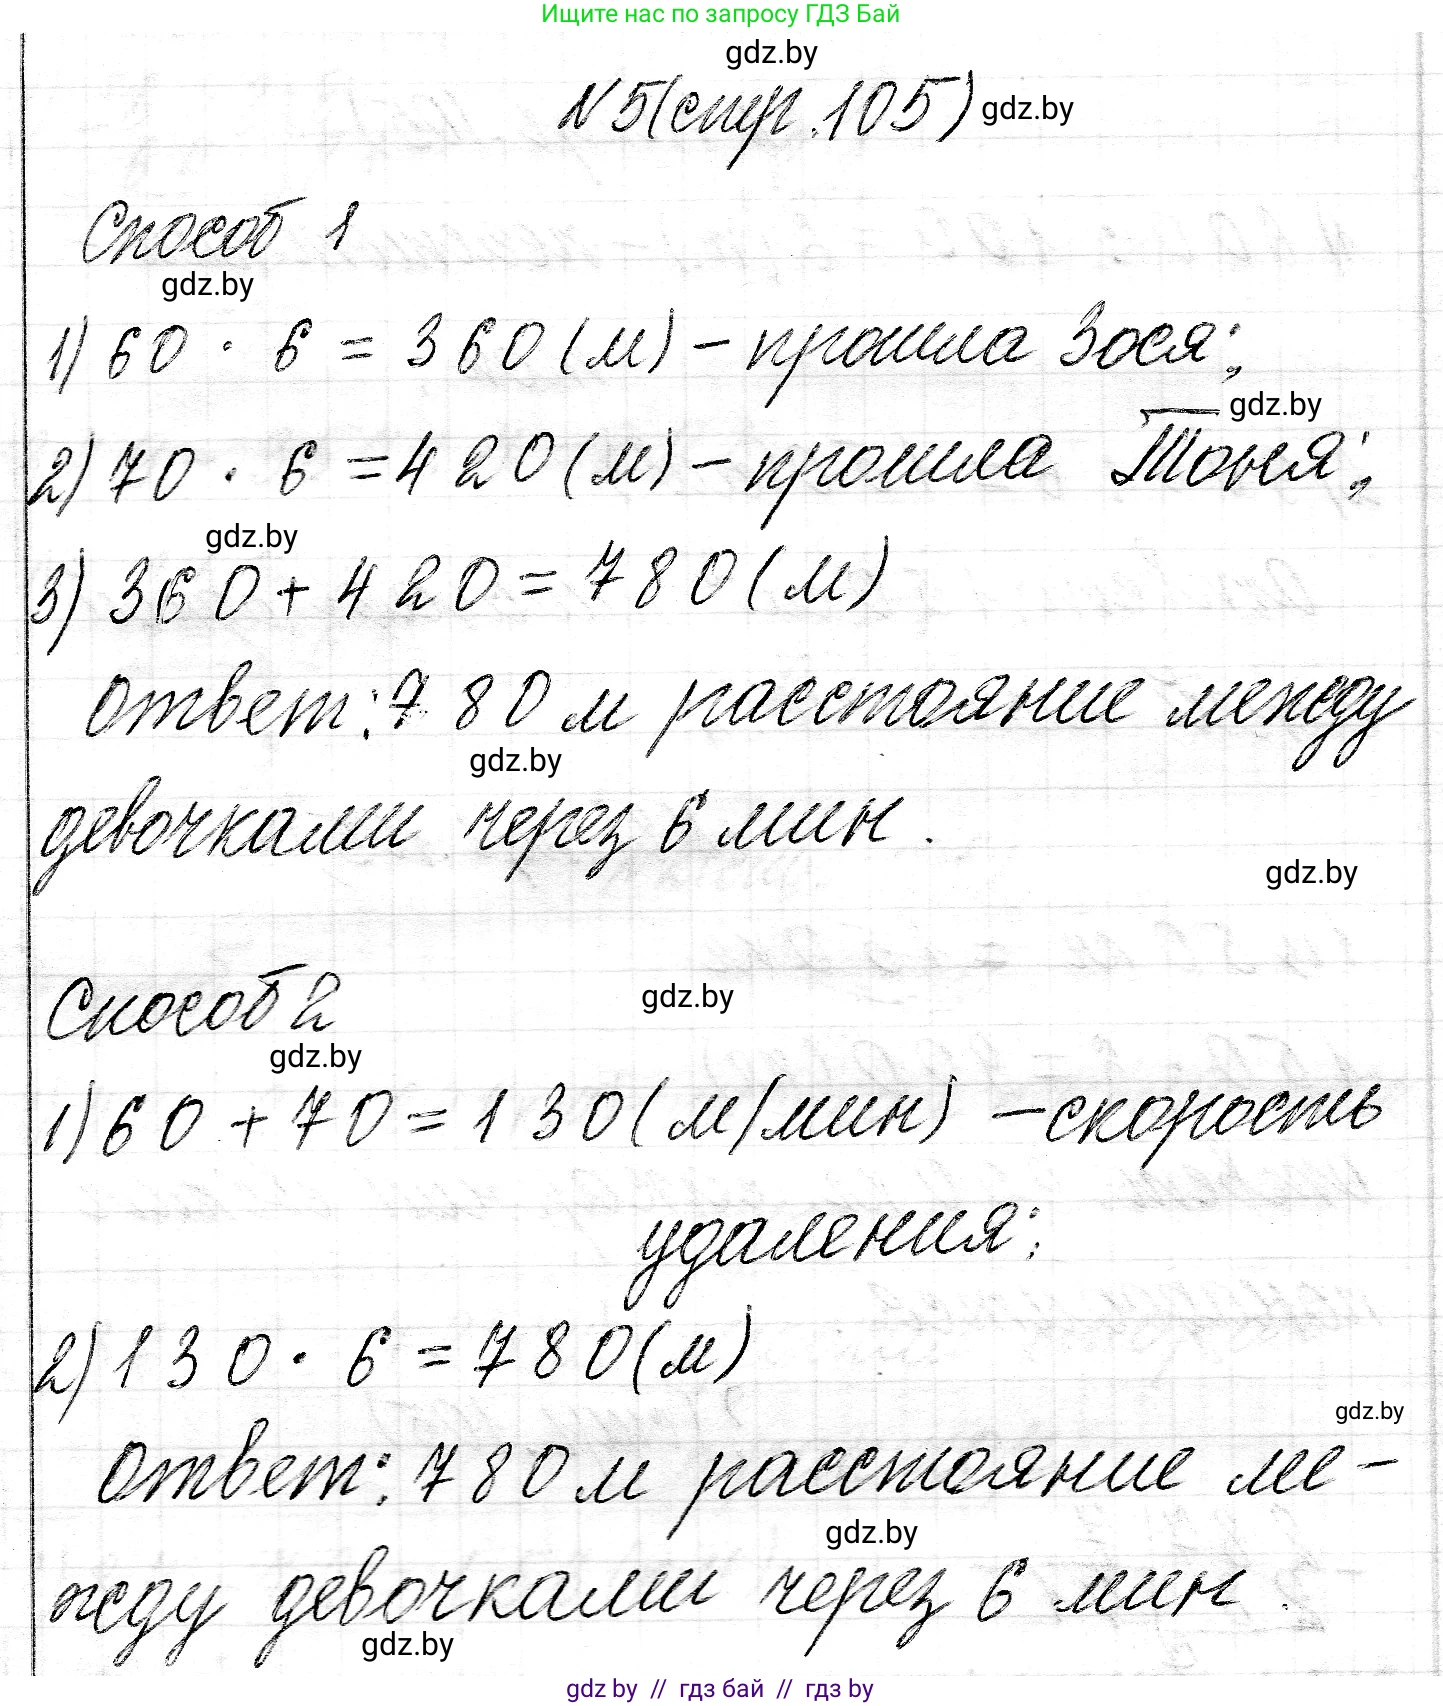 Ищите нас по запросу ГДЗ Бай
gdz.by
N 5 (стр. 105) gdz.by
Способ 1
gdz.by
1) 60 · 6 = 360 (м) – прошла Зося;
gdz.by
2) 70 · 6 = 420 (м) – прошла Тоня;
gdz.by
3) 360 + 420 = 780 (м)
ответ: 780 м расстояние между
gdz.by
девочками через 6 мин.
gdz.by
Способ 2
gdz.by
gdz.by
1) 60 + 70 = 130 (м/мин) – скорость
удаления;
2) 130 · 6 = 780 (м)
gdz.by
ответ: 780 м расстояние ме-
gdz.by
жду девочками через 6 мин.
gdz.by
gdz by // гдз бай // гдз by